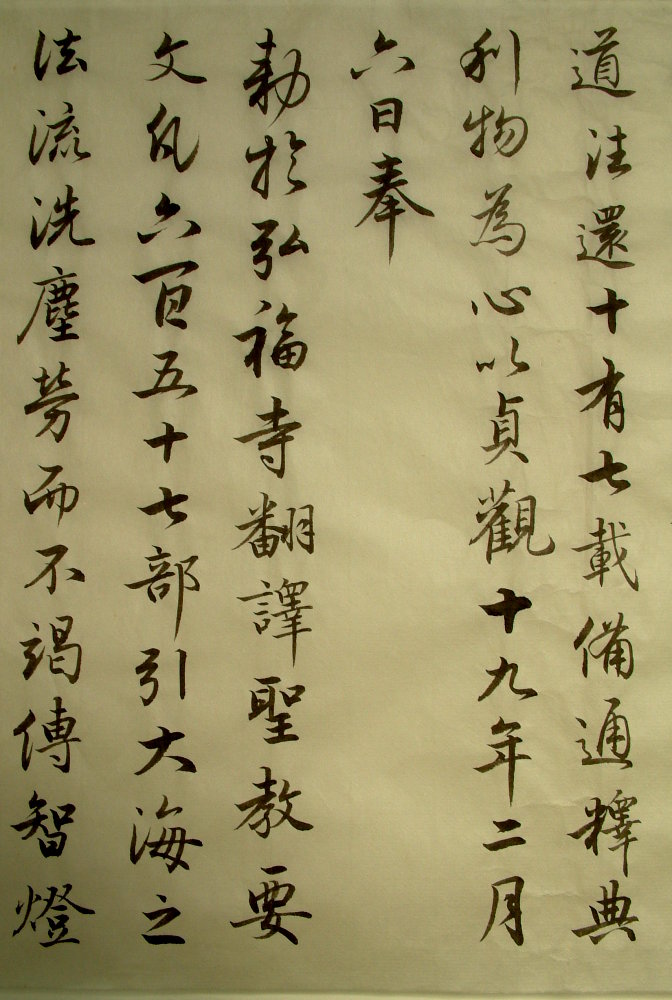 道法還十有七載備通釋典
利物為心以貞觀十九年二月
六日奉
勅於弘福寺翻譯聖教要
文凡六百五十七部引大海之
法流洗塵勞而不竭傳智燈